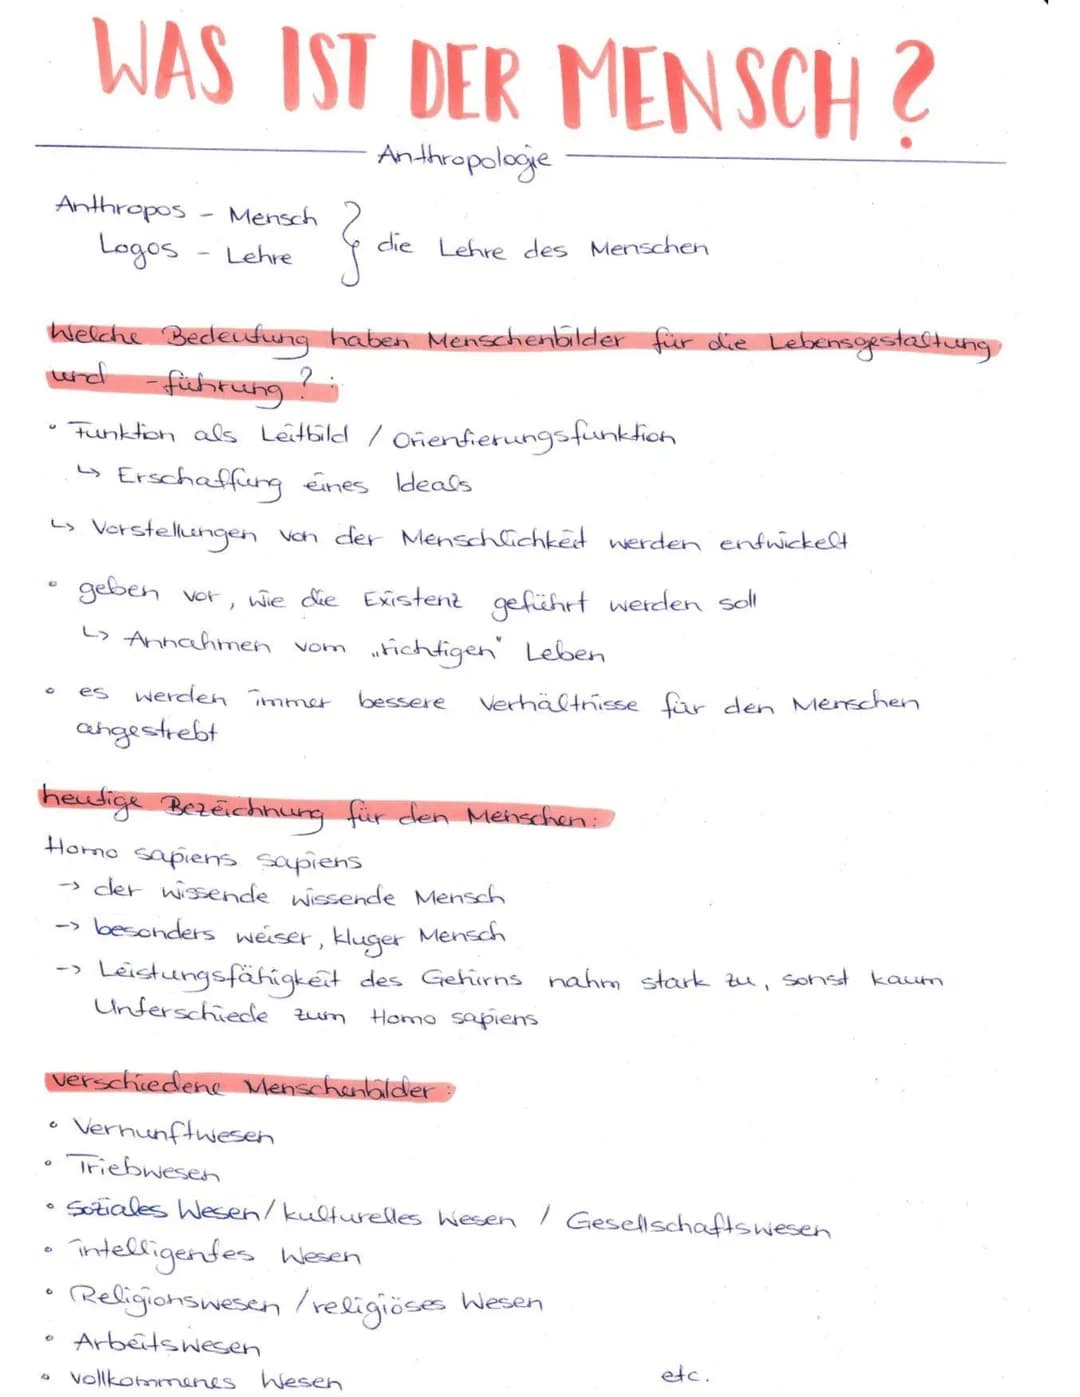 WAS IST DER MENSCH?
Anthropologie
Anthropos - Mensch
Logos - Lehre } die Lehre des Menschen
Welche Bedeutung haben Menschenbilder für die Lebensgestaltung
und -führung?:
• Funktion als Leitbild / Orientierungsfunktion
↳ Erschaffung eines Ideals
↳ Vorstellungen von der Menschlichkeit werden entwickelt
• geben vor, wie die Existenz geführt werden soll
↳ Annahmen vom „richtigen" Leben
• es werden immer bessere Verhältnisse für den Menschen
angestrebt
heutige Bezeichnung für den Menschen:
Homo sapiens sapiens
→ der wissende wissende Mensch
→ besonders weiser, kluger Mensch
→ Leistungsfähigkeit des Gehirns nahm stark zu, sonst kaum
Unterschiede zum Homo sapiens
verschiedene Menschenbilder:
• Vernunftwesen
• Triebwesen
• soziales Wesen / kulturelles Wesen / Gesellschaftswesen
• intelligentes Wesen
• Religionswesen / religiöses Wesen
• Arbeitswesen
• vollkommenes Wesen etc.